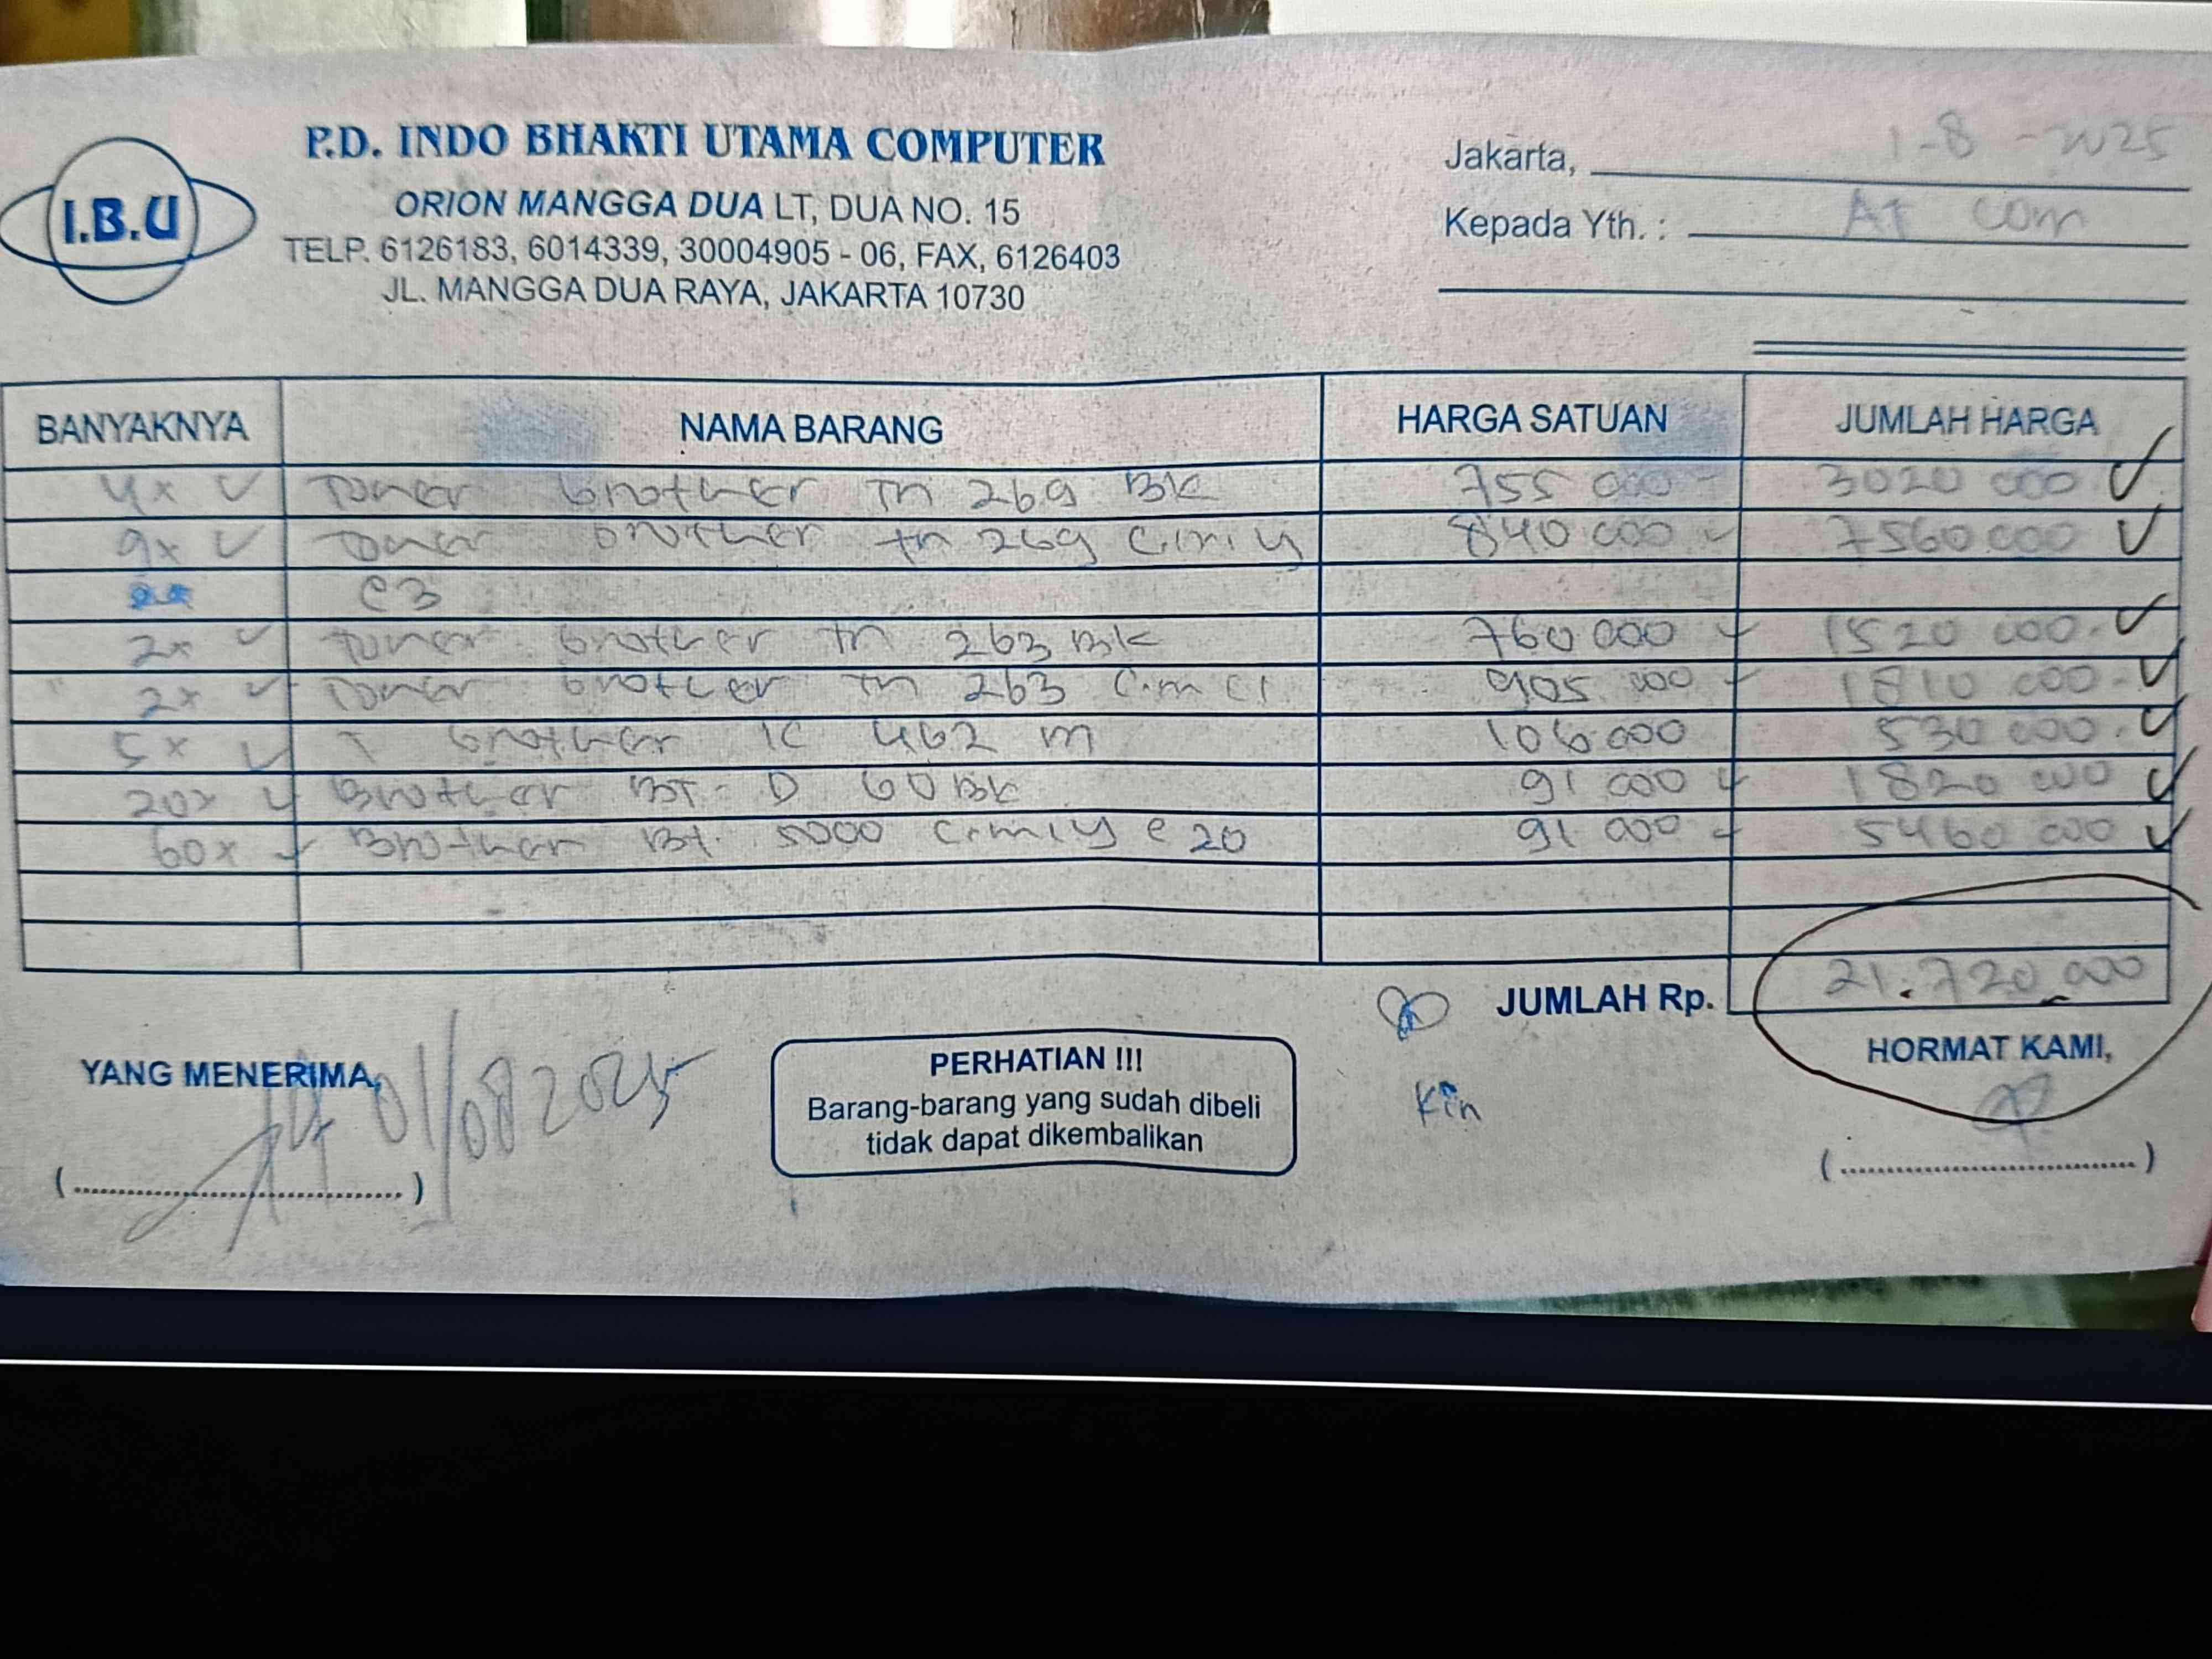 I.B.U
P.D. INDO BHAKTI UTAMA COMPUTER
ORION MANGGA DUA LT, DUA NO. 15
TELP. 6126183, 6014339, 30004905 - 06, FAX, 6126403
JL. MANGGA DUA RAYA, JAKARTA 10730
Jakarta, 1-8-2025
Kepada Yth. : AT com
BANYAKNYA NAMA BARANG HARGA SATUAN JUMLAH HARGA
4x Toner brother Tn 269 BK 755 000 3020 000
9x Toner brother tn 269 C.m.y 840 000 7560.000
e3
2x toner brother tn 263 BK 760 000 1520 000
2x Toner brother tn 263 905 000 1810 000
5x T brother lc 462 m 106 000 530 000
20x Brother BT-D 60 BK 91 000 1820 000
60x Brother Bt. 5000 c.m.y e 20 91 000 5460 000
JUMLAH Rp. 21.720.000
YANG MENERIMA,
01/08 2025
PERHATIAN !!!
Barang-barang yang sudah dibeli
tidak dapat dikembalikan
Kin
HORMAT KAMI,